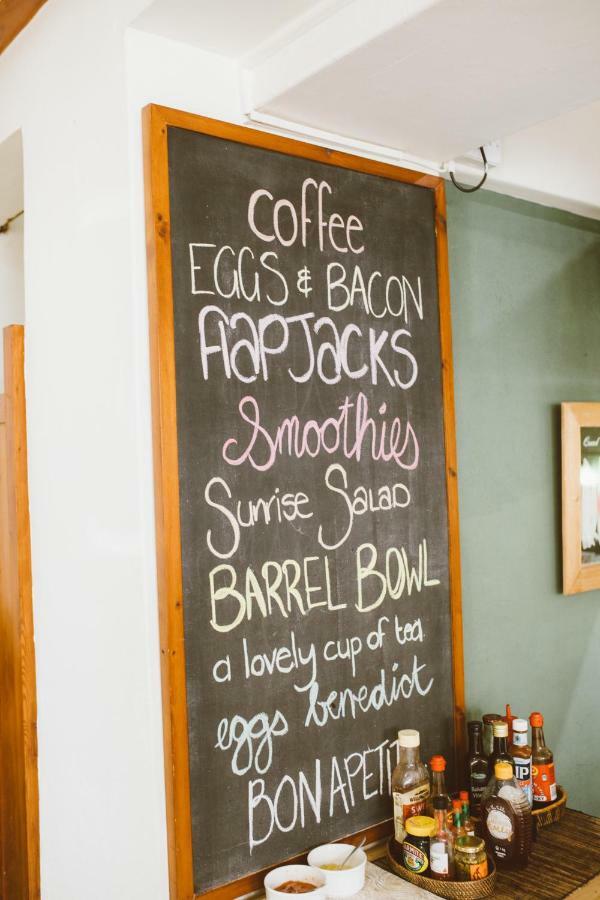 coffee
EGGS & BACON
flapJacks
Smoothies
Sunrise Salad
BARREL BOWL
a lovely cup of tea
eggs benedict
BON APETIT
HP